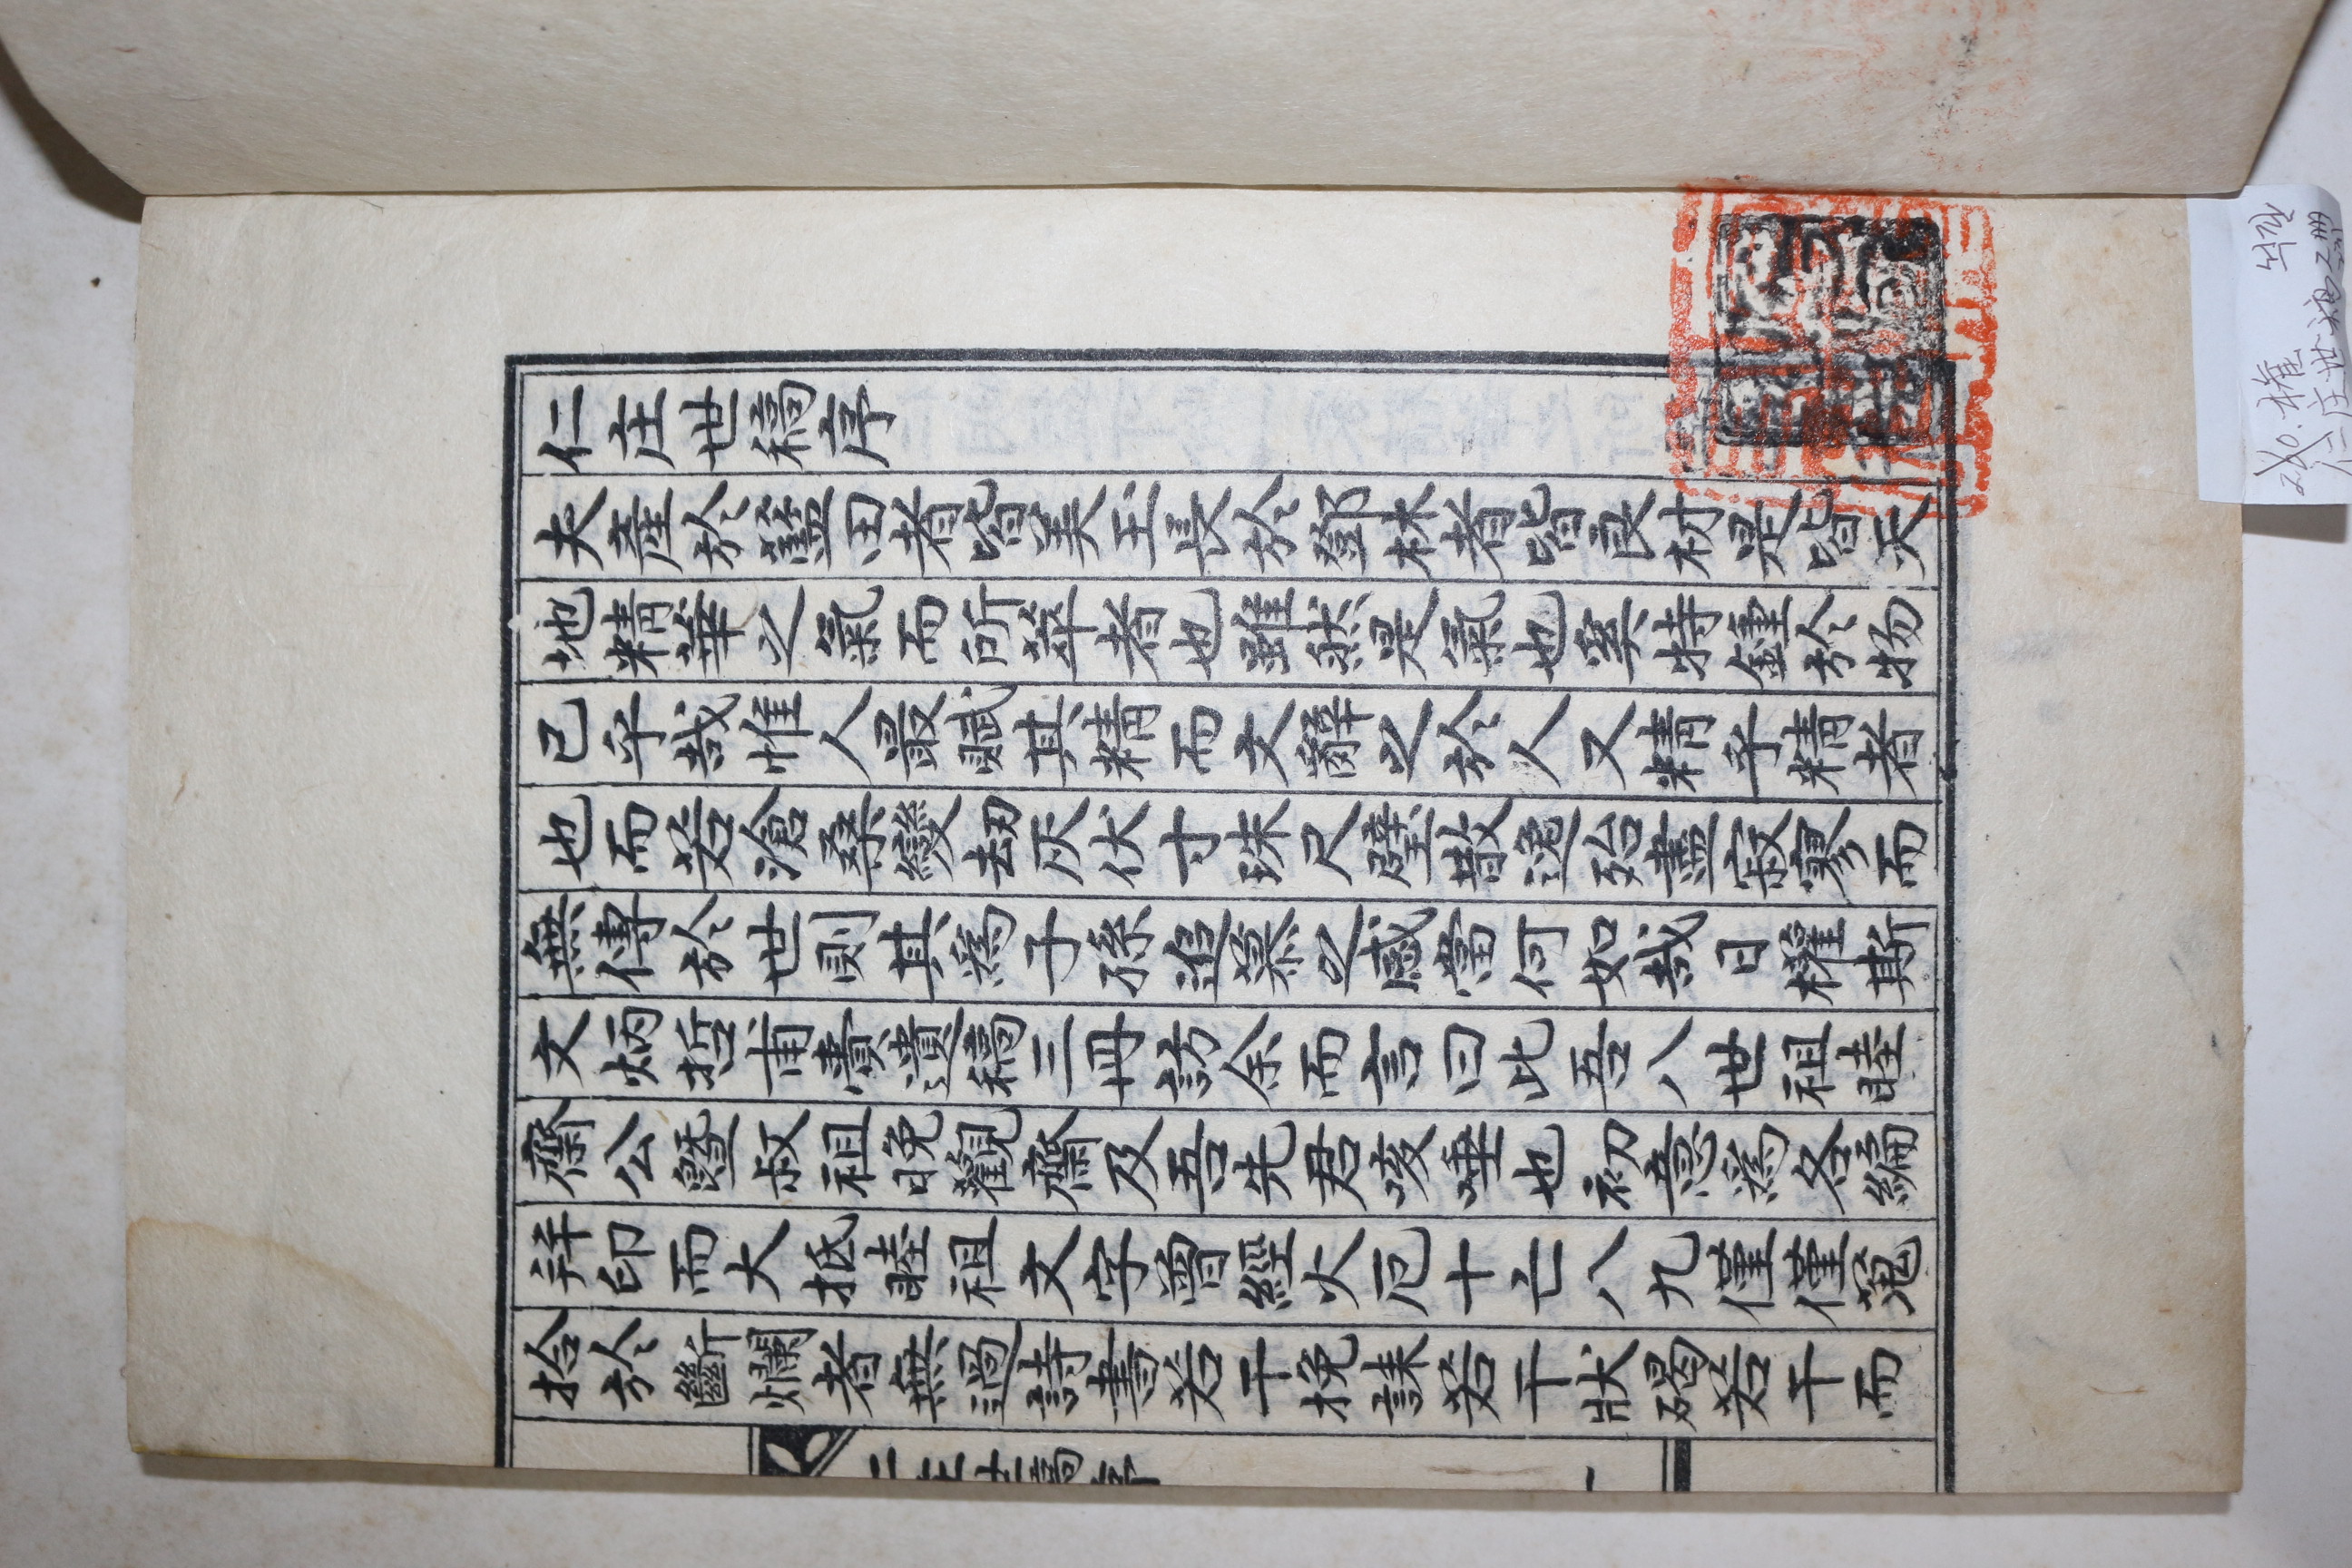 仁庄世稿序
夫產於藍田者皆美玉長於鄧林者皆良材是皆天
地精華之氣而所萃者也雖然是氣也奚特鍾於物
已乎哉惟人最賦其精而文辭之於人又精乎精者
也而若滄桑變劫灰伏寸珠尺璧散逸殆盡寂寥而
無傳於世則其爲子孫追慕之感當何如哉日權斯
文炳哲甫賷遺稿三冊訪余而言曰此吾八世祖睦
齋公曁叔祖晚觀齋及吾先君咳唾也初意爲各編
辨印而大抵睦祖文字曾經火厄十亡八九僅僅蒐
拾於斷爛者無過詩書若干挽誄若干狀碣若干而
仁庄世稿序
一
權 석판
仁庄世稿 2冊